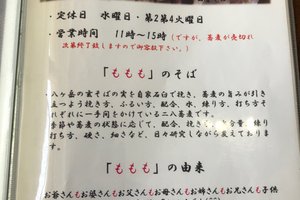 ・定休日 水曜日・第2第4火曜日
・営業時間 11時〜15時(ですが、蕎麦が売切れ
次第終了致しますので御容赦下さい。)
「ももも」のそば
八ヶ岳の玄そばの実を自家石臼で挽き、蕎麦の旨みが引き
立つよう挽き方、ふるい方、配合、水、練り方、打ち方そ
れぞれに一手間をかけている二八蕎麦です。
季節や蕎麦の状態に応じて、配合、挽き
打ち方、硬さ、細さなど、日々研究しながら変えておりま
す。
「ももも」の由来
お爺さんもお婆さんもお父さんもお母さんもお姉さんもお兄さんも子供